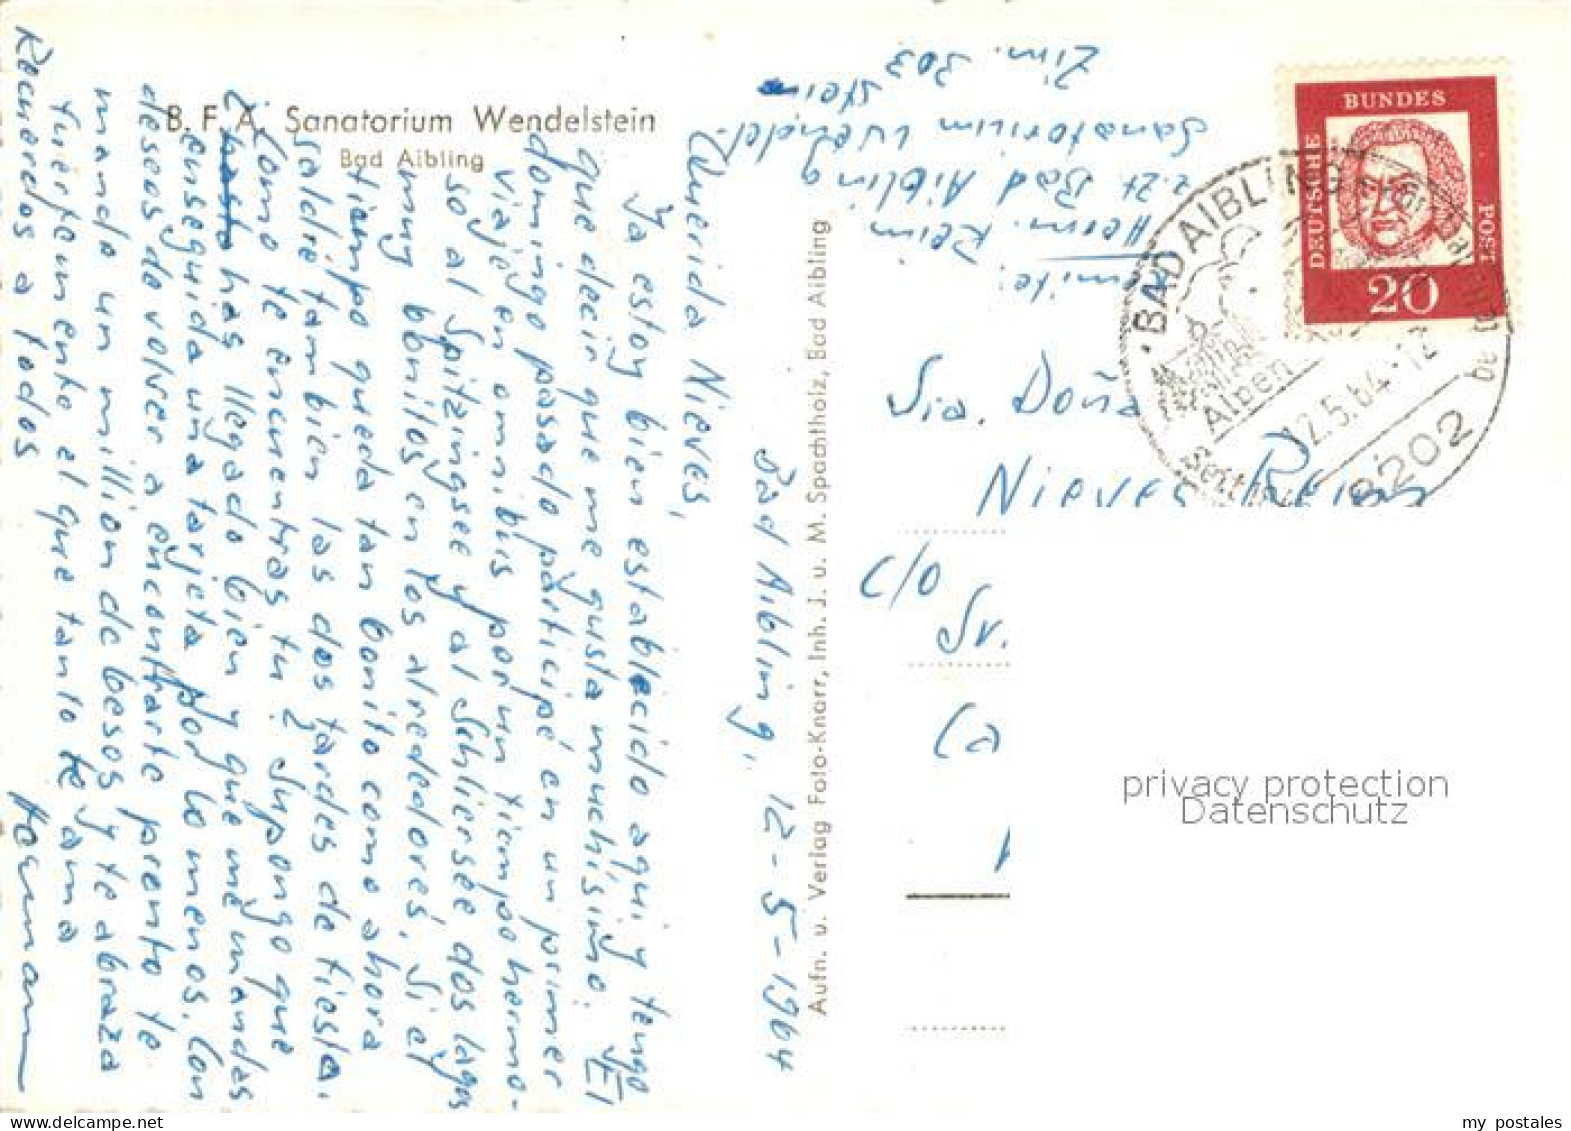 B.F.A. Sanatorium Wendelstein
Bad Aibling
Bad Aibling, 12-5-1964
Querida Nieves,
Ya estoy bien establecido aqui y tengo
que decir que me gusta muchísimo. El
domingo pasado participé en un primer
viaje en omnibus por un tiempo hermo-
so al Spitzingsee y al Schliersee dos lagos
muy bonitos en los alrededores. Si el
tiempo queda tan bonito como ahora
saldré tambien las dos tardes de fiesta.
Como te encuentras tu? Supongo que
has llegado bien y que me mandes
enseguida una tarjeta por lo menos. Con
deseos de volver a encontrarte pronto te
mando un million de besos y te abraza
fuertemente el que tanto te ama
Hermann
Recuerdos a todos
Aufn. u. Verlag Foto-Knarr, Inh. J. u. M. Spachtholz, Bad Aibling
Herm. Reim
z.Zt. Bad Aibling
Sanatorium Wendel-
stein
Zim. 303
DEUTSCHE BUNDES POST
20
BAD AIBLING
12.5.64-12
8202
Sra. Doña
Nieves
c/o
Sr.
Ca
privacy protection
Datenschutz
my postales